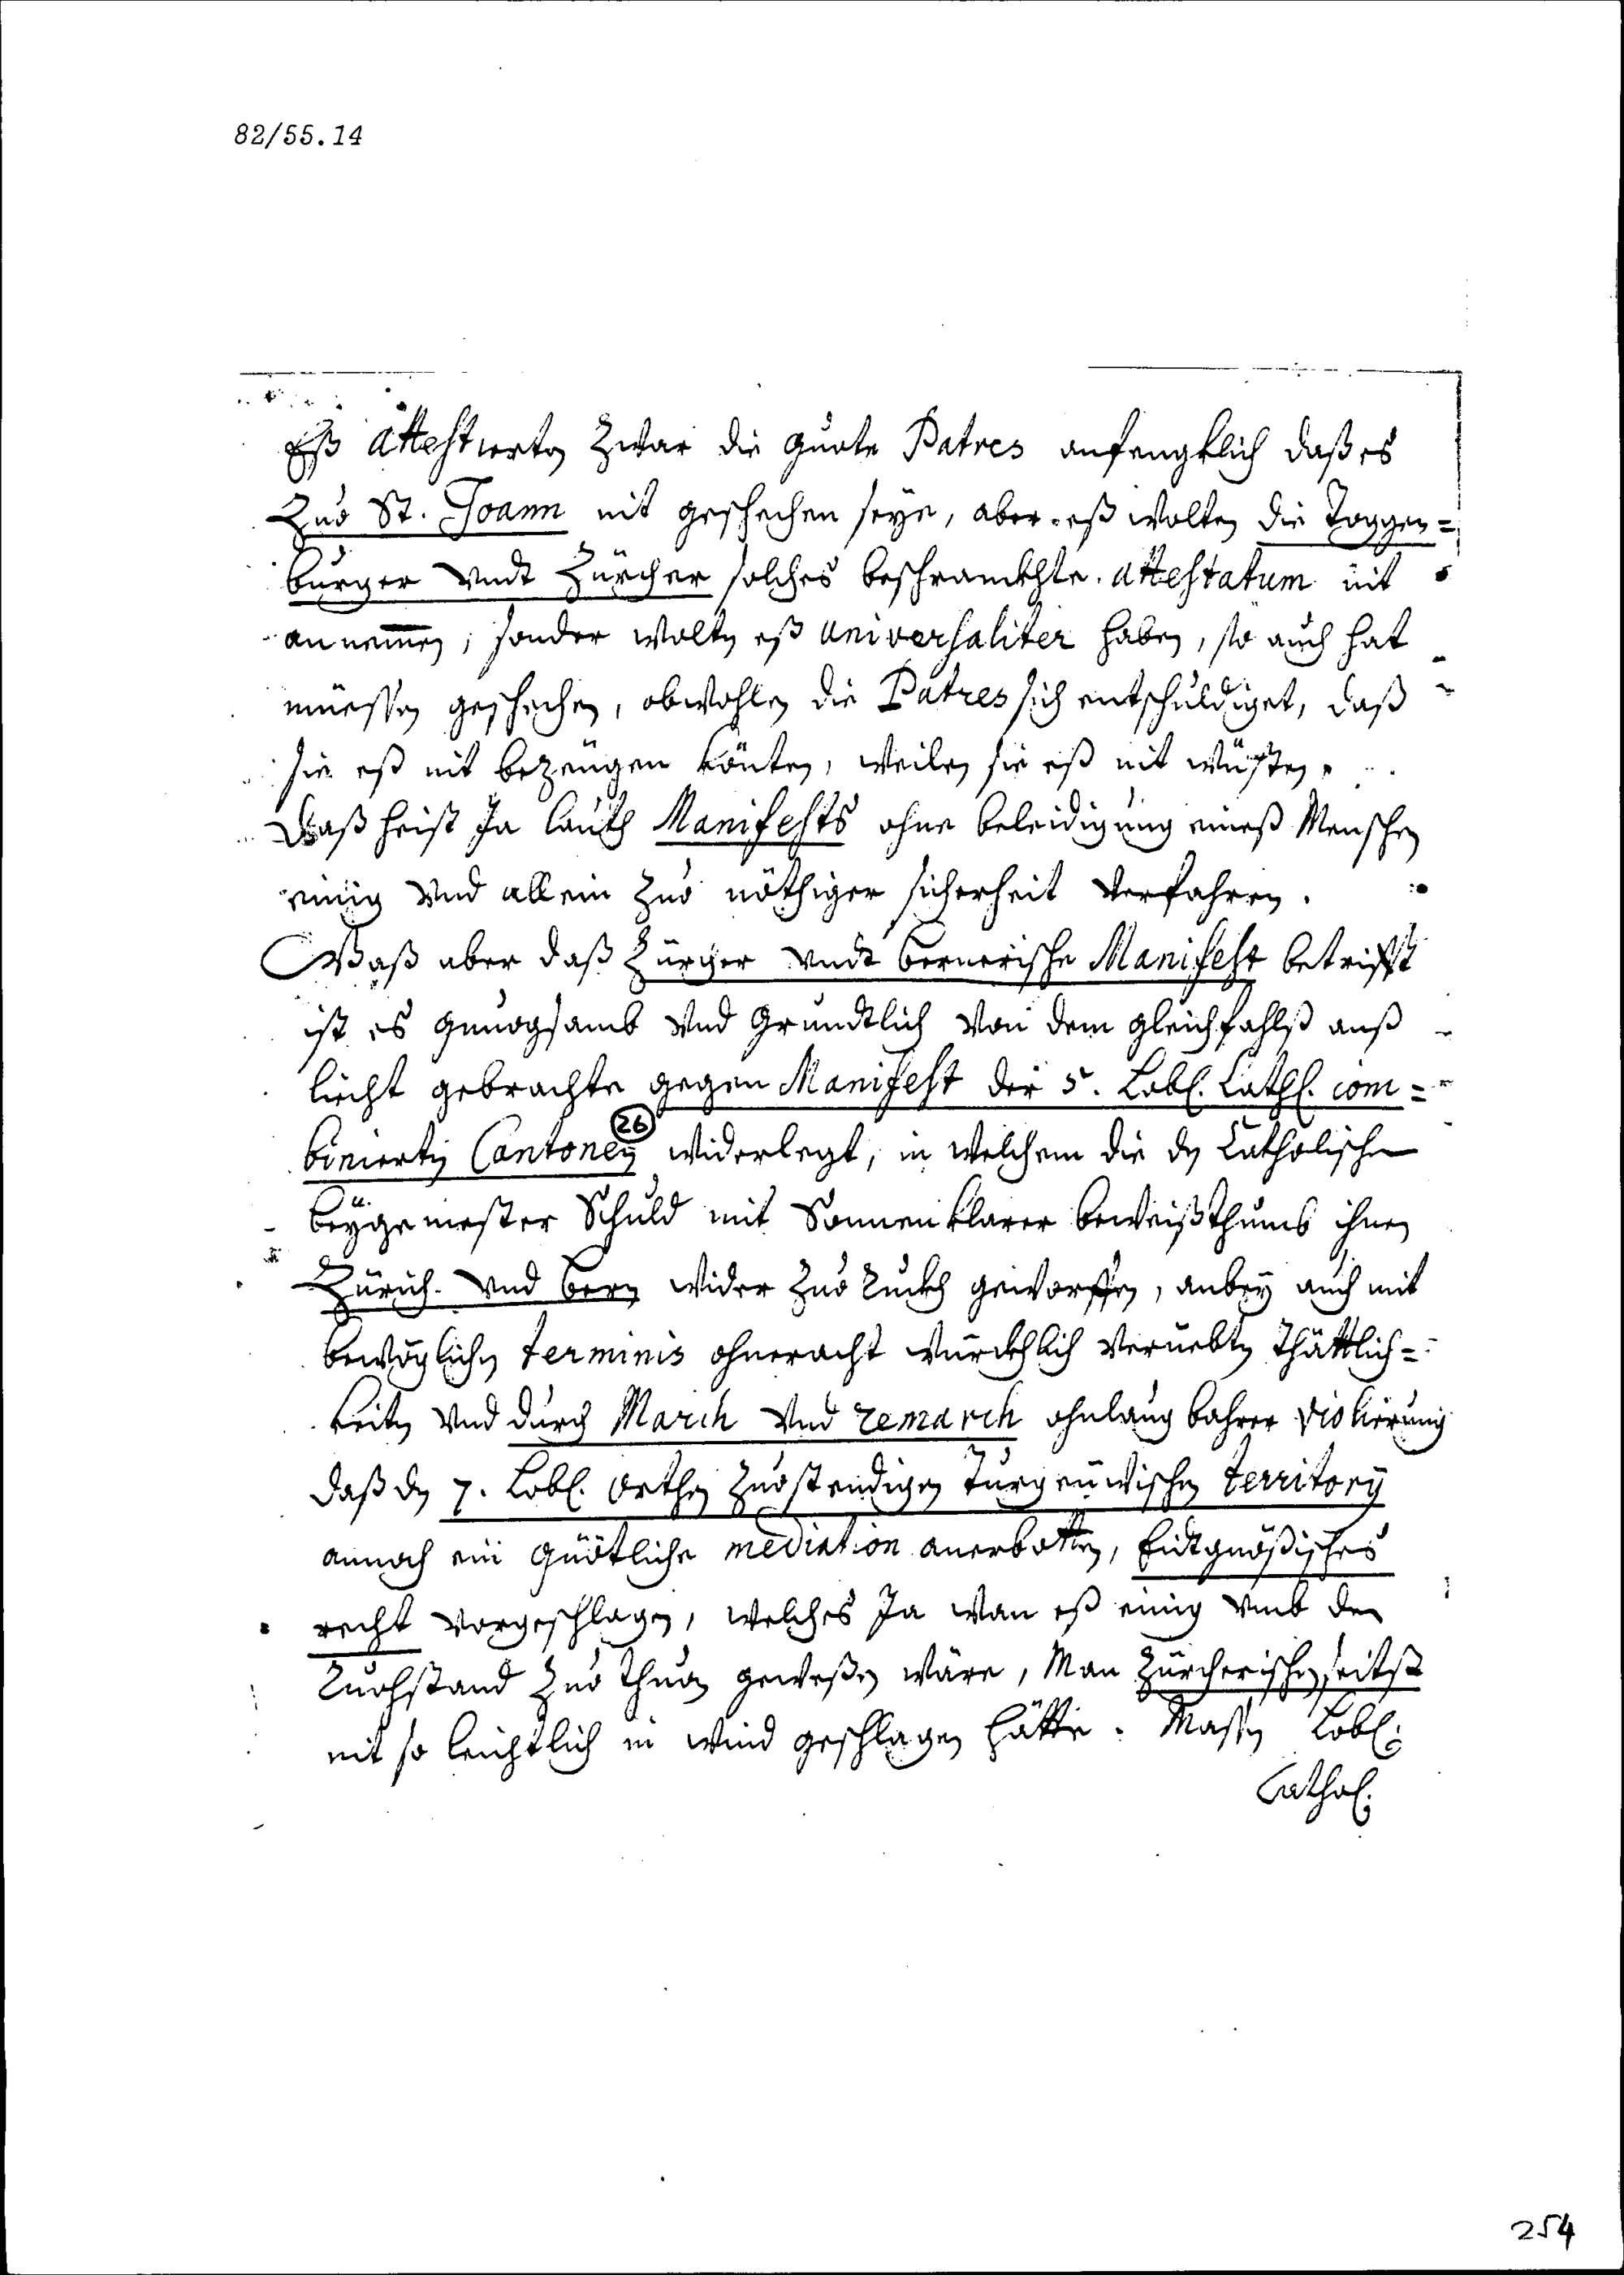 82/55.14
Eß attestierten zwar die guote Patres anfengklich daß es
zuo St. Joann nit geschechen seye, aber eß wolten die Toggen=
burger undt Zürcher solches beschranckhte attestatum nit
annemmen, sonder wolten eß universaliter haben, so auch hat
müessen geschechen, obwohlen die Patres sich entschuldiget, daß
sie eß nit bezeugen könten, weilen sie eß nit wüsten.
Daß heist Ja lauth Manifests ohne beleidigung eineß Menschen
einig und allein zuo nöthiger sicherheit verfahren.
Waß aber daß Zürcher undt bernerische Manifest betrifft
ist es genuogsamb und gründtlich von dem gleichfahlß anß
liecht gebrachte gegen Manifest der 5. Lobl. Cathl. com=
binierten Cantonen (26) widerlegt, in welchem die den Catholischen
beygemester Schuld mit Sonnenklarer beweißthumb ihnen
Zürich und bern wider zuo Ruckh geworffen, anbey auch mit
bewöglichen terminis ohneracht würckhlich verüebten thättlich=
keiten und durch March und remarch ohnlaugbahrer violierung
daß den 7. Lobl. Orthen zuostendigen Turgeüwischen territory
annoch ein güötliche mediation anerbotten, Eidtgnößisches
recht vorgeschlagen, welches Ja wan eß einig umb den
Ruohstand zuo thuon geweßen wäre, Man Zürcherischen seitß
nit so leichtlich in wind geschlagen hätte. Massen Lobl.
Cathol.
254